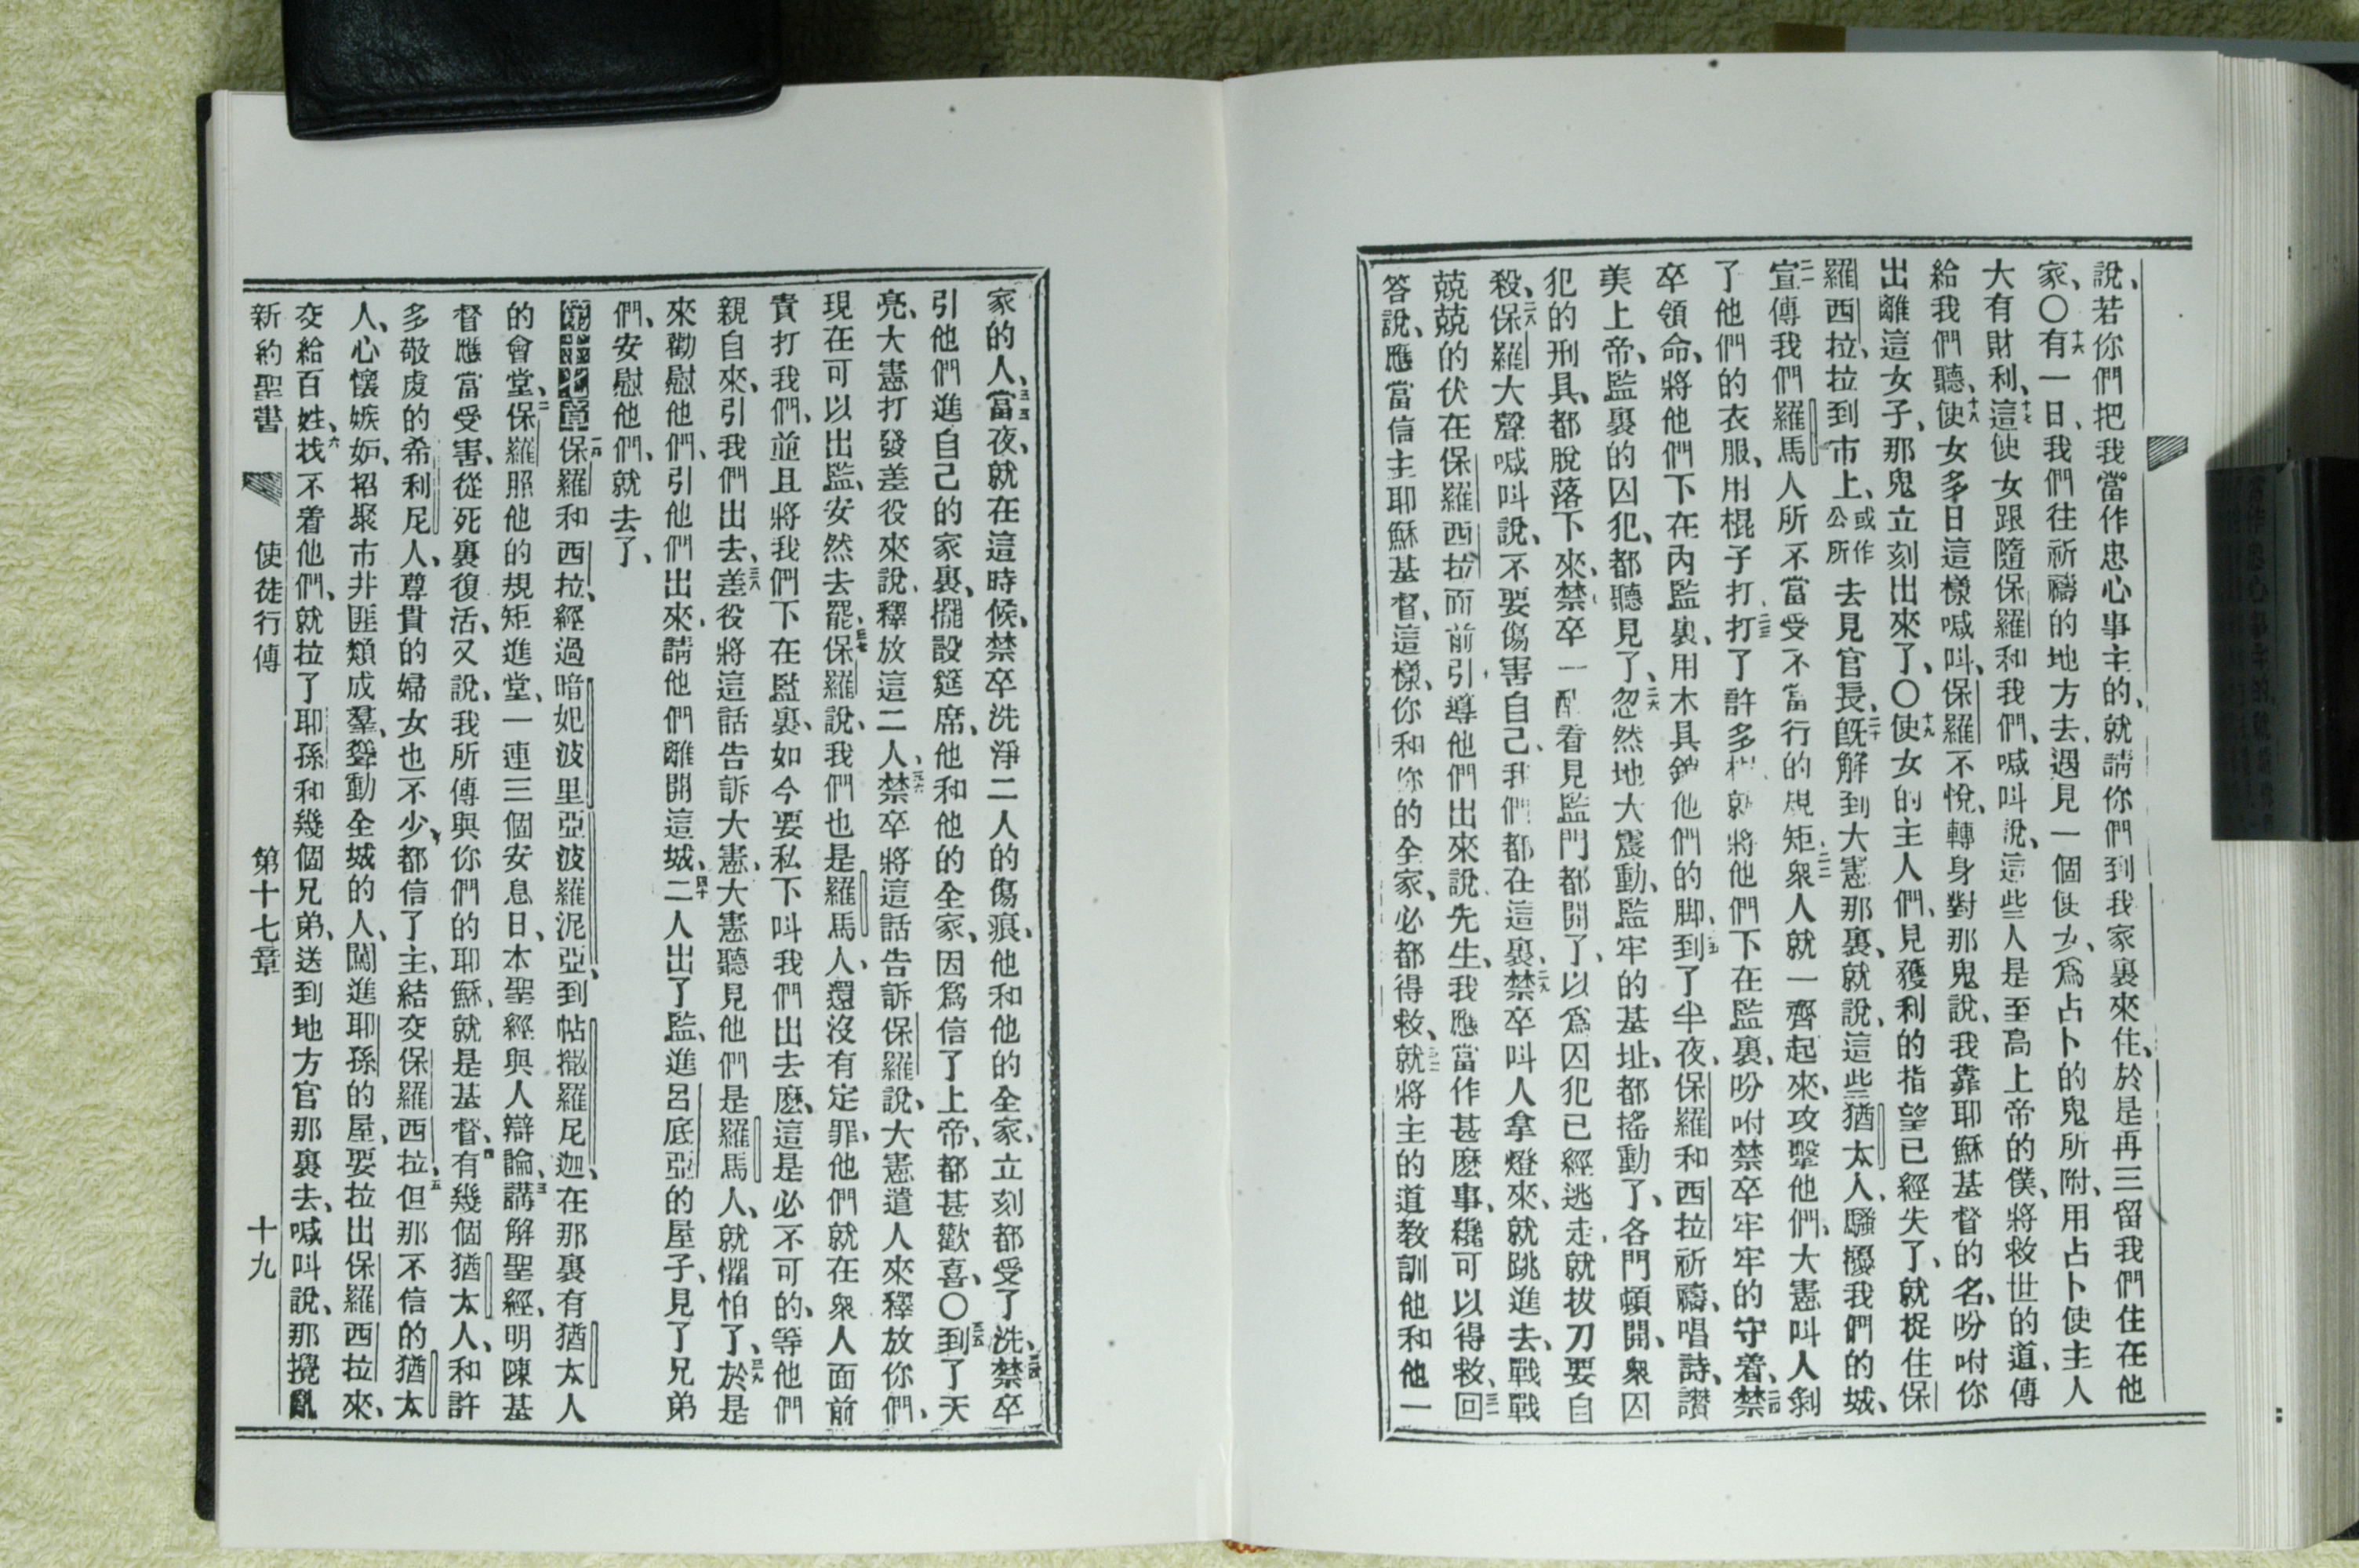 說、若你們把我當作忠心事主的、就請你們到我家裏來住、於是再三留我們住在他
家、〇十六有一日、我們往祈禱的地方去、遇見一個使女、爲占卜的鬼所附、用占卜使主人
大有財利、十七這使女跟隨保羅和我們、喊叫說、這些人是至高上帝的僕、將救世的道、傳
給我們聽、十八使女多日這樣喊叫、保羅不悅、轉身對那鬼說、我靠耶穌基督的名、吩咐你
出離這女子、那鬼立刻出來了、〇十九使女的主人們、見獲利的指望已經失了、就捉住保
羅西拉、拉到市上、或作公所去見官長、二十旣解到大憲那裏、就說、這些猶太人、騷擾我們的城、
二一宣傳我們羅馬人所不當受不當行的規矩、二二衆人就一齊起來、攻擊他們、大憲叫人剝
了他們的衣服、用棍子打、二三打了許多棍、就將他們下在監裏、吩咐禁卒牢牢的守着、二四禁
卒領命、將他們下在內監裏、用木具鎖他們的脚、二五到了半夜、保羅和西拉祈禱、唱詩、讚
美上帝、監裏的囚犯、都聽見了、二六忽然地大震動、監牢的基址、都搖動了、各門頓開、衆囚
犯的刑具、都脫落下來、禁卒一醒、看見監門都開了、以爲囚犯已經逃走、就拔刀要自
殺、二八保羅大聲喊叫說、不要傷害自己、我們都在這裏、二九禁卒叫人拿燈來、就跳進去、戰戰
兢兢的伏在保羅西拉面前、引導他們出來說、先生、我應當作甚麽事、纔可以得救、三一回
答說、應當信主耶穌基督、這樣、你和你的全家、必都得救、三二就將主的道教訓他和他一
家的人、三三當夜、就在這時候、禁卒洗淨二人的傷痕、他和他的全家、立刻都受了洗、三四禁卒
引他們進自己的家裏、擺設筵席、他和他的全家、因爲信了上帝、都甚歡喜、〇三五到了天
亮、大憲打發差役來說、釋放這二人、三六禁卒將這話告訴保羅說、大憲遣人來釋放你們、
現在可以出監、安然去罷、三七保羅說、我們也是羅馬人、還沒有定罪、他們就在衆人面前
責打我們、並且將我們下在監裏、如今要私下叫我們出去麽、這是必不可的、等他們
親自來、引我們出去、三八差役將這話告訴大憲、大憲聽見他們是羅馬人、就懼怕了、三九於是
來勸慰他們、引他們出來、請他們離開這城、四十二人出了監、進呂底亞的屋子、見了兄弟
們、安慰他們、就去了、
第十七章一保羅和西拉、經過暗妃波里亞波羅泥亞、到帖撒羅尼迦、在那裏有猶太人
的會堂、二保羅照他的規矩進堂、一連三個安息日、本聖經與人辯論、三講解聖經、明陳基
督應當受害、從死裏復活、又說、我所傳與你們的耶穌、就是基督、四有幾個猶太人、和許
多敬虔的希利尼人、尊貴的婦女也不少、都信了主、結交保羅西拉、五但那不信的猶太
人、心懷嫉妒、招聚市井匪類成羣、聳動全城的人、闖進耶孫的屋、要拉出保羅西拉來、
交給百姓、六找不着他們、就拉了耶孫和幾個兄弟、送到地方官那裏去、喊叫說、那攪亂
新約聖書 使徒行傳 第十七章 十九